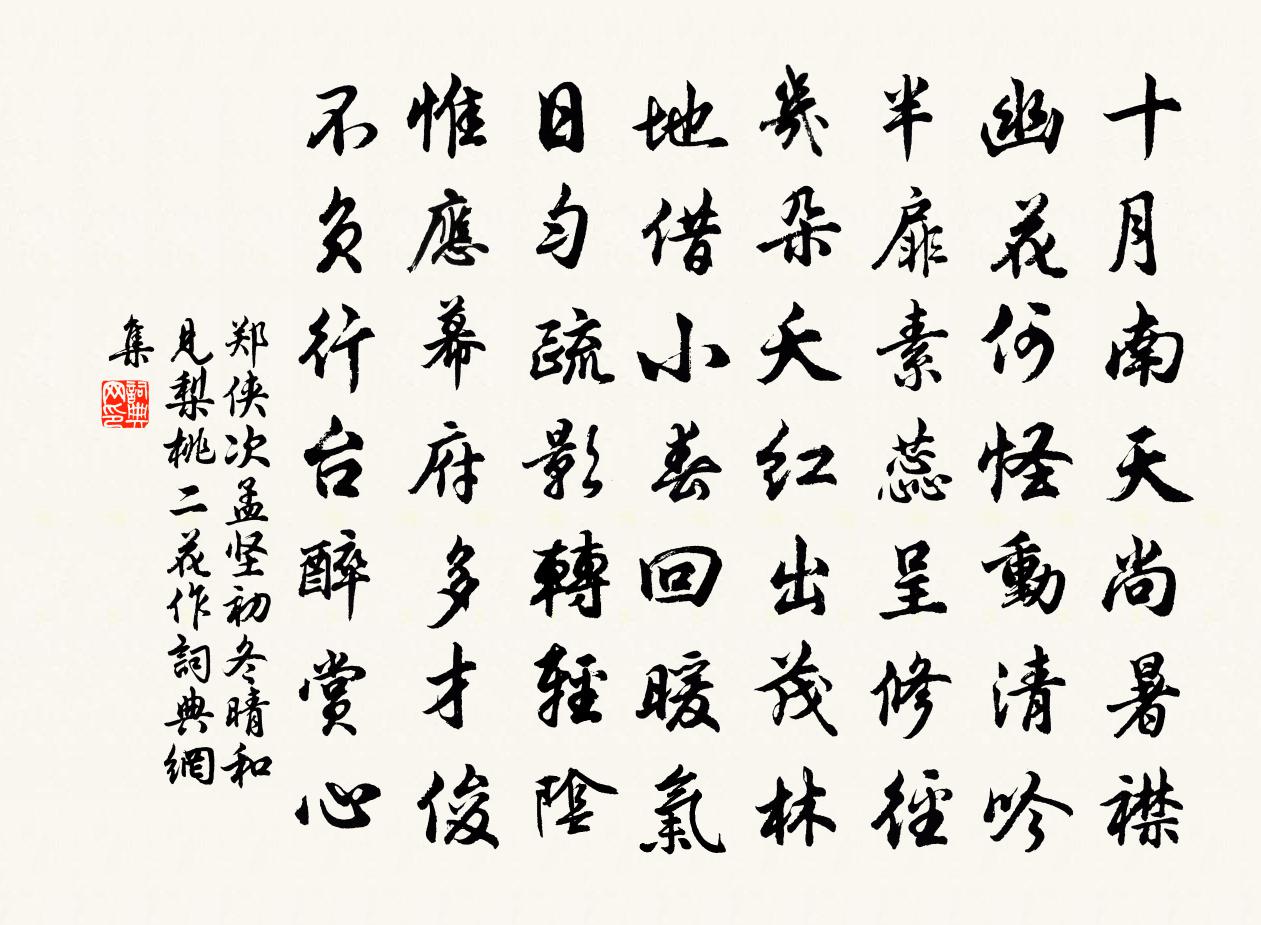 十月南天尚暑襟
幽花何怪動清吟
半扉素蕊呈修徑
幾朵夭红出茂林
地借小春回暖氣
日勻疏影轉輕陰
惟應幕府多才俊
不負行台醉賞心
郑侠次孟坚初冬晴和
見梨桃二花作詞典網
集
詞典
网印